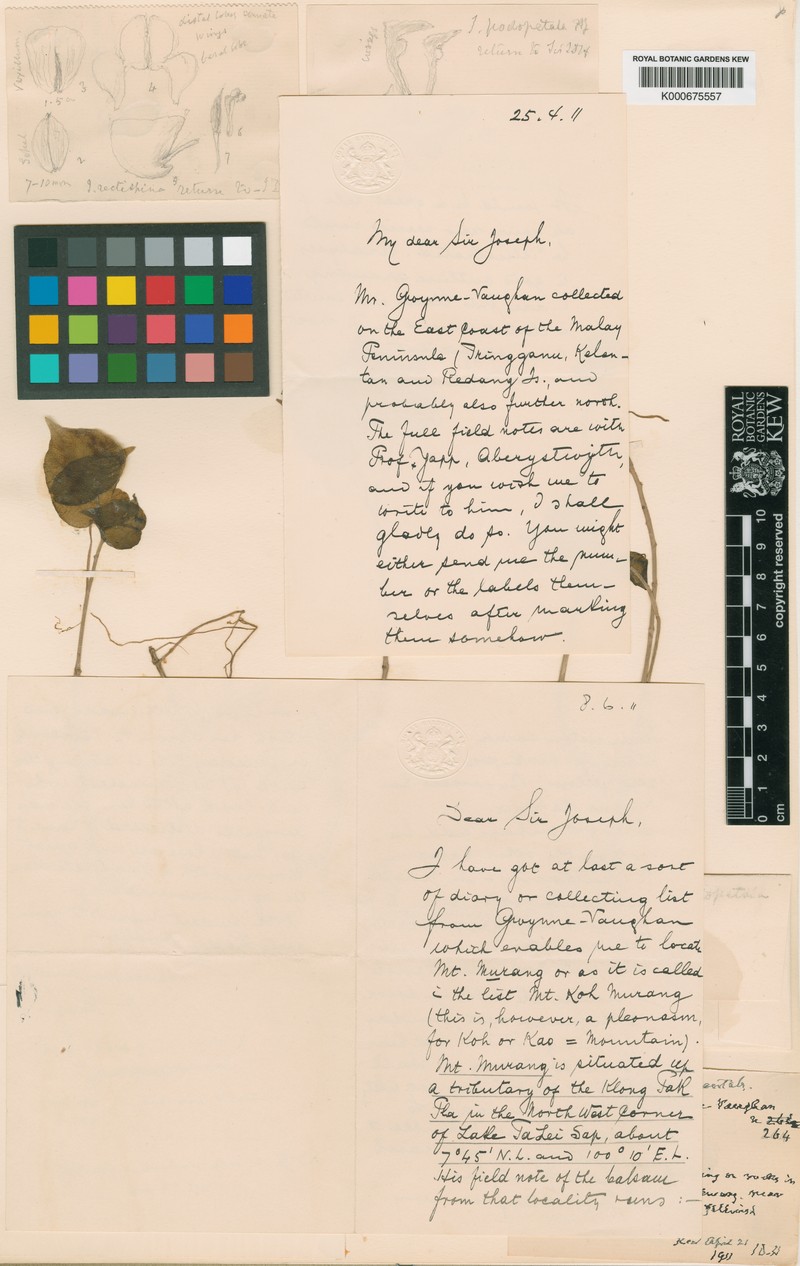 distal lobes connate
wings
basal like
Vexillum
3
4
1.5 cm
Sepal
2
6
7
7-10mm I. rectispina return to
I. psodopetala Hf
return to
ROYAL BOTANIC GARDENS KEW
K000675557
25.4.11
My dear Sir Joseph,
Mr. Gwynne-Vaughan collected
on the East Coast of the Malay
Peninsula (Tringganu, Kelan-
tan and Redang Is., and
probably also further north.
The full field notes are with
Prof. Yapp, Aberystwyth,
and if you wish me to
write to him, I shall
gladly do so. You might
either send me the num-
ber or the labels them-
selves after marking
them somehow.
ROYAL
BOTANIC
GARDENS
KEW
0 1 2 3 4 5 6 7 8 9 10
cm
copyright reserved
8.6.11
Dear Sir Joseph,
I have got at last a sort
of diary or collecting list
from Gwynne-Vaughan
which enables me to locate
Mt. Murang or as it is called
i the list Mt. Koh Murang
(this is, however, a pleonasm,
for Koh or Kao = Mountain).
Mt. Murang is situated up
a tributary of the Klong Tak
Pla in the North West Corner
of Lake TaLei Sap, about
7°45' N.L. and 100°10' E.L.
His field note of the balsam
from that locality runs :—
Vaughan
264
ing on rocks in
near
Kew April 21
1911